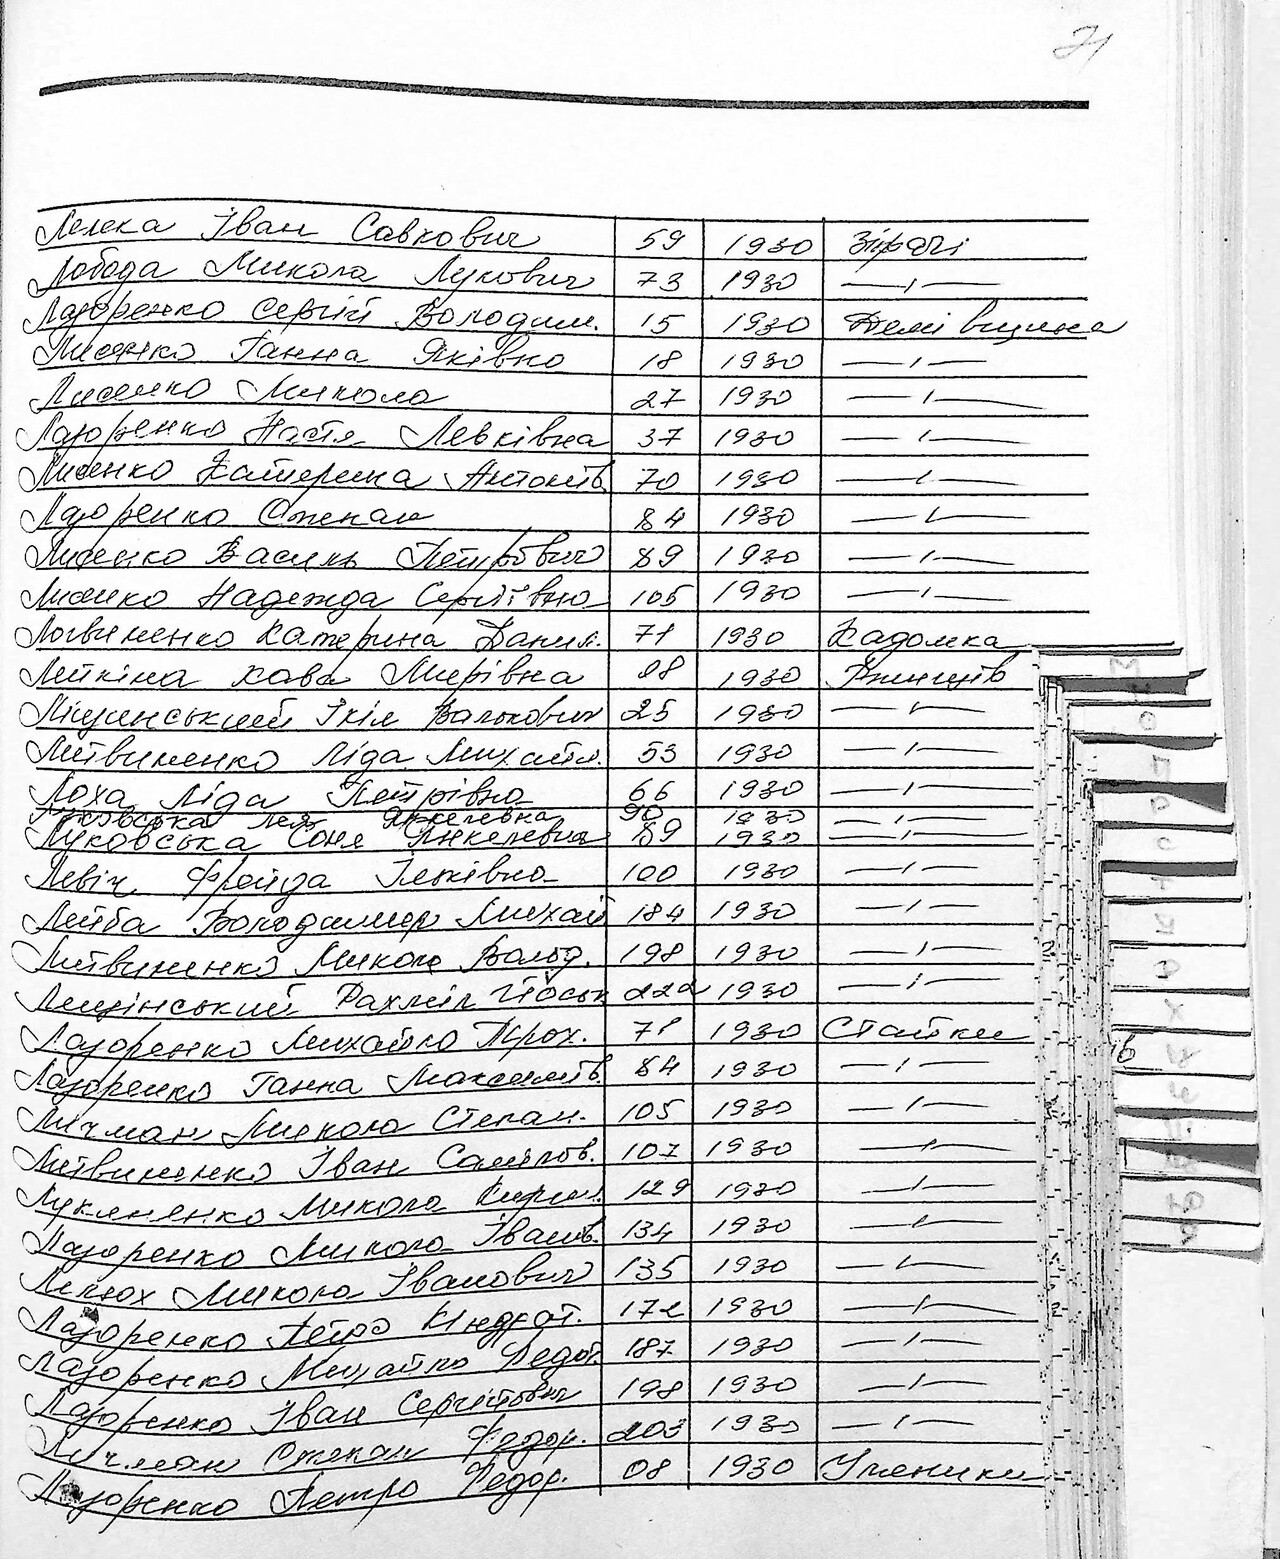 21
Лелека Іван Савкович 59 1930 Зікрачі
Лобода Микола Лукович 73 1930 —〃—
Лазоренко Сергій Володим. 15 1930 Демівщина
Лисенко Ганна Яківна 18 1930 —〃—
Лисенко Микола 27 1930 —〃—
Лазоренко Настя Левківна 37 1930 —〃—
Лисенко Катерина Антонів 70 1930 —〃—
Лазоренко Степан 84 1930 —〃—
Лисенко Василь Петрович 89 1930 —〃—
Лисенко Надежда Сергіївна 105 1930 —〃—
Логвиненко Катерина Данил. 71 1930 Кадомка
Лейкіна Хава Мирівна 08 1930 Ржищів
Ліщинський Ікіл Волькович 25 1930 —〃—
Литвиненко Ліда Михайл. 53 1930 —〃—
Лоха Ліда Петрівна 66 1930 —〃—
Луковська Лея Янкелевна 90 1930 —〃—
Луковська Соня Янкелевна 89 1930 —〃—
Левіч Фрейда 100 1930 —〃—
Лейба Володимир Михай 184 1930 —〃—
Литвиненко Микола Волод. 198 1930 —〃—
Лещінський Рахміл Йоськ 222 1930 —〃—
Лазоренко Михайло Трох. 71 1930 Стайки
Лазоренко Ганна Максимів 84 1930 —〃—
Личман Микола Степан. 105 1930 —〃—
Литвиненко Іван Самілов. 107 1930 —〃—
Лукяненко Микола Кирил. 129 1930 —〃—
Лазоренко Микола Іванів. 134 1930 —〃—
Микола Іванович 135 1930 —〃—
Лазоренко Петро Кіндрат. 172 1930 —〃—
Лазоренко Михайло Федот. 187 1930 —〃—
Лазоренко Іван Сергійович 198 1930 —〃—
Личман Степан Федор. 203 1930 —〃—
Лазоренко Петро Федор. 08 1930 Уляники